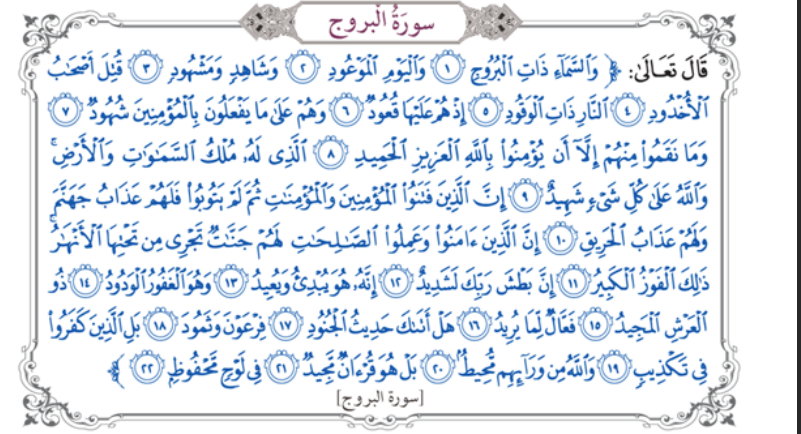 سورة البروج
قَالَ تَعَالَىٰ: ﴿ وَٱلسَّمَآءِ ذَاتِ ٱلْبُرُوجِ ١ وَٱلْيَوْمِ ٱلْمَوْعُودِ ٢ وَشَاهِدٍ وَمَشْهُودٍ ٣ قُتِلَ أَصْحَٰبُ
ٱلْأُخْدُودِ ٤ ٱلنَّارِ ذَاتِ ٱلْوَقُودِ ٥ إِذْ هُمْ عَلَيْهَا قُعُودٌ ٦ وَهُمْ عَلَىٰ مَا يَفْعَلُونَ بِٱلْمُؤْمِنِينَ شُهُودٌ ٧
وَمَا نَقَمُوا۟ مِنْهُمْ إِلَّآ أَن يُؤْمِنُوا۟ بِٱللَّهِ ٱلْعَزِيزِ ٱلْحَمِيدِ ٨ ٱلَّذِى لَهُۥ مُلْكُ ٱلسَّمَٰوَٰتِ وَٱلْأَرْضِ ۚ
وَٱللَّهُ عَلَىٰ كُلِّ شَىْءٍ شَهِيدٌ ٩ إِنَّ ٱلَّذِينَ فَتَنُوا۟ ٱلْمُؤْمِنِينَ وَٱلْمُؤْمِنَٰتِ ثُمَّ لَمْ يَتُوبُوا۟ فَلَهُمْ عَذَابُ جَهَنَّمَ
وَلَهُمْ عَذَابُ ٱلْحَرِيقِ ١٠ إِنَّ ٱلَّذِينَ ءَامَنُوا۟ وَعَمِلُوا۟ ٱلصَّٰلِحَٰتِ لَهُمْ جَنَّٰتٌ تَجْرِى مِن تَحْتِهَا ٱلْأَنْهَٰرُ ۚ
ذَٰلِكَ ٱلْفَوْزُ ٱلْكَبِيرُ ١١ إِنَّ بَطْشَ رَبِّكَ لَشَدِيدٌ ١٢ إِنَّهُۥ هُوَ يُبْدِئُ وَيُعِيدُ ١٣ وَهُوَ ٱلْغَفُورُ ٱلْوَدُودُ ١٤ ذُو
ٱلْعَرْشِ ٱلْمَجِيدُ ١٥ فَعَّالٌ لِّمَا يُرِيدُ ١٦ هَلْ أَتَىٰكَ حَدِيثُ ٱلْجُنُودِ ١٧ فِرْعَوْنَ وَثَمُودَ ١٨ بَلِ ٱلَّذِينَ كَفَرُوا۟
فِى تَكْذِيبٍ ١٩ وَٱللَّهُ مِن وَرَآئِهِم مُّحِيطٌۢ ٢٠ بَلْ هُوَ قُرْءَانٌ مَّجِيدٌ ٢١ فِى لَوْحٍ مَّحْفُوظٍۭ ٢٢ ﴾
[سورة البروج]